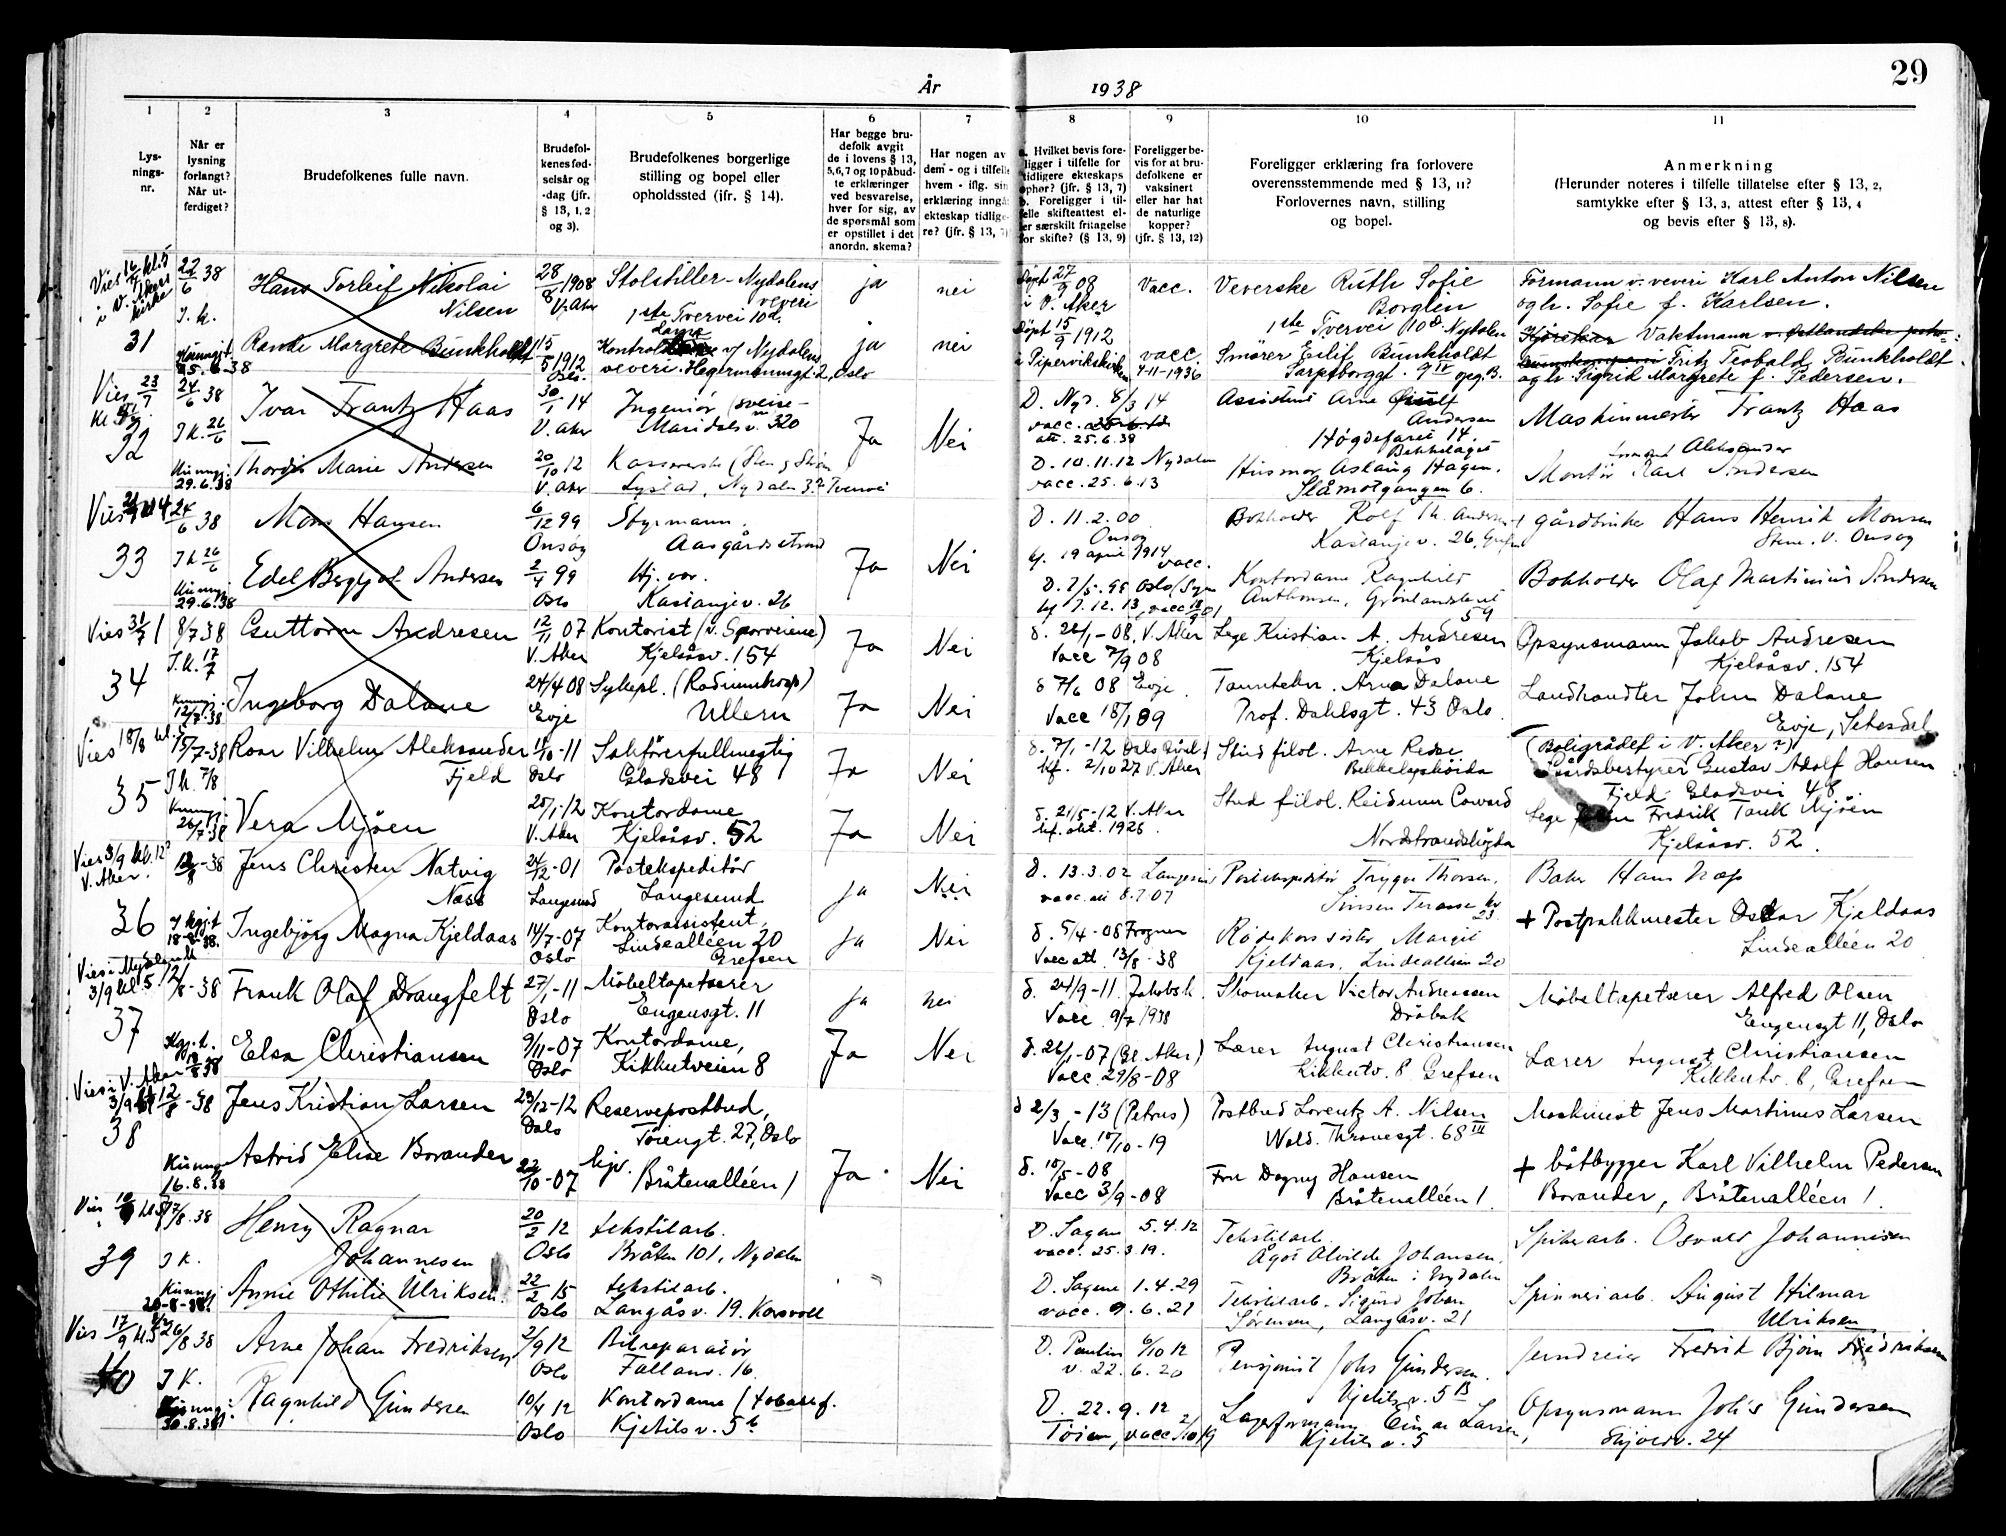 29
År 1938
1 2 3 4 5 6 7 8 9 10 11
Lys-
nings-
nr.
Når er
lysning
forlangt?
Når ut-
ferdiget?
Brudefolkenes fulle navn.
Brudefol-
kenes fød-
selsår og
-dag (jfr.
§ 13, 1, 2
og 3).
Brudefolkenes borgerlige
stilling og bopel eller
opholdssted (ifr. § 14).
Har begge bru-
defolk avgit
de i lovens § 13,
5, 6, 7 og 10 påbud-
te erklæringer
ved besvarelse,
hver for sig, av
de spørsmål som
er opstillet i det
anordn. skema?
Har nogen av
dem - og i tilfelle
hvem - iflg. sin
erklæring inngå
ekteskap tidlige-
re? (jfr. § 13, 7)
a. Hvilket bevis fore-
ligger i tilfelle for
tidligere ekteskaps
ophør? (jfr. § 13, 7)
b. Foreligger i til-
felle skifteattest el-
er særskilt fritagelse
for skifte? (§ 13, 9)
Foreligger be-
vis for at bru-
defolkene er
vaksinert
eller har hat
de naturlige
kopper?
(jfr. § 13, 12)
Foreligger erklæring fra forlovere
overensstemmende med § 13, 11?
Forlovernes navn, stilling
og bopel.
Anmerkning
(Herunder noteres i tilfelle tillatelse efter § 13, 2,
samtykke efter § 13, 3, attest efter § 13, 4
og bevis efter § 13, 8).
31
22/6 38
Hans Torleif Nikolai Nilsen
28/8 1908 V. Aker
Stolstiller - Nydalens veveri
1ste Tvervei 10d.
ja nei
Døpt 27/9 08 i V. Aker
Vacc.
Veverske Ruth Sofie Borglin
1ste Tvervei 10d Nydalen
Formann v. veveri Karl Anton Nilsen
og h. Sofie f. Karlsen.
Kunngjt. 25.6.38
Randi Margrete Bunkholdt
15/5 1912 Oslo.
v/ Nydalens
veveri. Hegermannsgt. 2, Oslo
ja nei
Døpt 15/9 1912 i Pipervikskirken
vacc. 4-11-1936
Smører Eilif Bunkholdt
Sarpsborggt. 9 IV opg. B.
Vaktmann
Fritz Teobald Bunkholdt
og h. Sigrid Margrete f. Pedersen.
Vies 23/7
32
24/6 38
I k. 26/6
Ivar Frantz Haas
30/1 14 V. Aker
Ingeniør
Maridalsv. 320
Ja Nei
D. Nyd. 8/3 14
att. 25.6.38
Assistent Arne
Andersen
Høgdefaret 14.
Bekkelaget
Maskinmester Frantz Haas
Kunngj. 29.6.38
Thordis Marie Andersen
20/10 12 V. Aker
D. 10.11.12 Nydalen
vacc. 25.6.13
Husmor Aslaug Hagen.
Slåmotgangen 6.
Montør Karl Aleksander Andersen
33
24/6 38
I k. 26/6
Mons Hansen
6/12 99 Onsøy
Styrmann.
Aasgårdstrand
Ja Nei
D. 11.2.00 Onsøy
kf. 19 april 1914 vacc.
Bokholder Rolf Th. Andersen
Kastanjev. 26, Grefsen
gårdbruker Hans Henrik Monsen
Onsøy
Kunngj. 29.6.38
Edel Bergljot Andersen
2/4 99 Oslo
Hj. vær.
Kastanjev. 26
Kontordame Ragnhild
Anthonsen, Grønlandsleiret
59
Bokholder Olaf Martinius Andersen
Vies 31/7
34
8/7 38
I k. 17/7
Guttorm Andresen
12/11 07 V. Aker
Kontorist (v. Sporveiene)
Kjelsåsv. 154
Ja Nei
d. 26/1-08, V. Aker
Vacc 7/9 08
Lege Kristian A. Andresen
Kjelsås
Opsynsmann Jakob Andresen
Kjelsåsv. 154
Kunngj. 12/7-38
Ingeborg Dalane
24/4 08 Evje
Sykepl. (Radiumhosp)
Ullern
Ja Nei
d 7/6 08 Evje
Vacc 18/1 09
Tanntekn. Arne Dalane
Prof. Dahlsgt. 43 Oslo.
Landhandler John Dalane
Evje, Setesdal
Vies 18/8 kl. 5
35
15/7-38
I k. 7/8
Roar Vilhelm Aleksander Fjeld
Oslo
Sakførerfullmegtig
Gladsvei 48
Ja Nei
d. 7/1-12
kf. 2/10 27 V. Aker
Stud filol. Arne Redse
Bekkelagshøida
(Boligrådet i V. Aker?)
Gårdsbestyrer Gustav Adolf Hansen
Fjeld Gladsvei 48.
Kunngj. 26/7-38
Vera Mjøen
25/1-12 V. Aker
Kontordame
Kjelsåsv. 52
Ja Nei
d. 21/5-12 V. Aker
kf. okt. 1926.
Stud filol. Reidunn Coward
Nordstrandshøgda
Lege Fredrik Tank Mjøen
Kjelsåsv. 52.
Vies 3/9 kl. 12
V. Aker.
36
12/8-38
Jens Christen Natvig Næss
24/12-01 Langesund
Postekspeditør
Langesund
Ja Nei
D. 13.3.02 Langesund
Postekspeditør Trygve Thorsen.
Sinsen Terasse
Baker Hans Næss
18-8-38.
Ingebjörg Magna Kjeldaas
14/7-07 Oslo
Kontorassistent,
Lindealléen 20
Grefsen
Ja Nei
d. 5/4-08 Frogner
Vacc att. 13/8-38
Rødekorssøster Margit
Kjeldaas, Lindealléen 20
+ Postpakkmester Oskar Kjeldaas
Lindealléen 20
3/9 kl. 5
37
12/8-38
Frank Olaf Drangfelt
27/1-11 Oslo
Møbeltapetserer
Eugensgt. 11
Ja nei
d. 24/9-11. Jakobsk.
Vacc. 9/7 1938
Skomaker Victor Andreassen
Drøbak
Møbeltapetserer Alfred Olsen
Eugensgt 11, Oslo
Elsa Christiansen
9/11-07 Oslo
Kontordame,
Kikkutveien 8
Ja Nei
d. 26/1-07 (Gl. Aker)
Vacc. 29/8-08
Lærer August Christiansen
Kikkutv. 8, Grefsen
Lærer August Christiansen
Kikkutv. 8, Grefsen
Vies i V. Aker
3/9
38
12/8-38
Jens Kristian Larsen
23/12-12 Oslo
Reservepostbud,
Tøiengt. 27, Oslo
d 2/3-13 (Petrus)
Vacc. 10/10-19
Postbud Lorentz A. Nilsen
Wald. Thranesgt. 68 III
Maskinist Jens Martinus Larsen
Kunngj. 16.8.38
Astrid Elise Borander
22/10-07
hjv.
Bråtenalléen 1
Ja. Nei
d. 10/5-08
Vacc 3/9-08
Fru Dagny Hansen
Bråtenalléen 1.
+ båtbygger Karl Vilhelm Pedersen
Borander, Bråtenalléen 1.
39
17/8.38
I K.
Henry Ragnar Johannesen
20/2 12 Oslo
tekstilarb.
Bråten 101, Nydalen
D. Sagene 5.4.12
vacc. 25.3.19.
Tekstilarb.
Ågot Alvilde Johansen,
Bråten i Nydalen
Spikerarb. Osvald Johannesen
Kunngj. 20-8-38
Annie Othilie Ulriksen.
22/2 15 Oslo
tekstilarb.
Langåsv. 19. Korsvoll
D. Sagene 1.4.29
vacc. 9.6.21
Tekstilarb. Sigurd Johan
Sørensen, Langåsv. 21
Spinneriarb. August Hilmar
Ulriksen
Vies 17/9 kl. 5
40
26/8 38
I K.
Arne Johan Fredriksen
2/9 12 Oslo
Bilreparatør
Fallanv. 16.
D. Paulus 6/10 12
v. 22.6.20
Pensjonist Johs Gundersen.
Kjetilsv. 5 B
Jerndreier Fredrik Bjørn Fredriksen
Kunngj: 30.8.38
Ragnhild Gundersen
10/4 12 Oslo
Kontordame (tobakkf.
Kjetilsv. 5b
D. 22.9.12
Tøien, vacc
Lagerformann Einar Larsen,
Kjetilsv. 5
Opsynsmann Joh's Gundersen
Skjoldv. 24